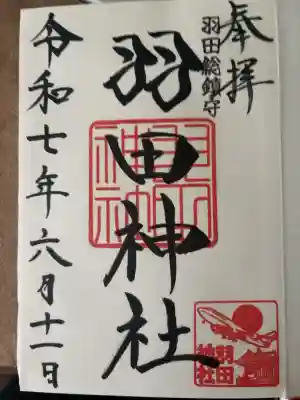 奉拝
羽田総鎮守
羽田神社
令和七年六月十一日
羽田
神社